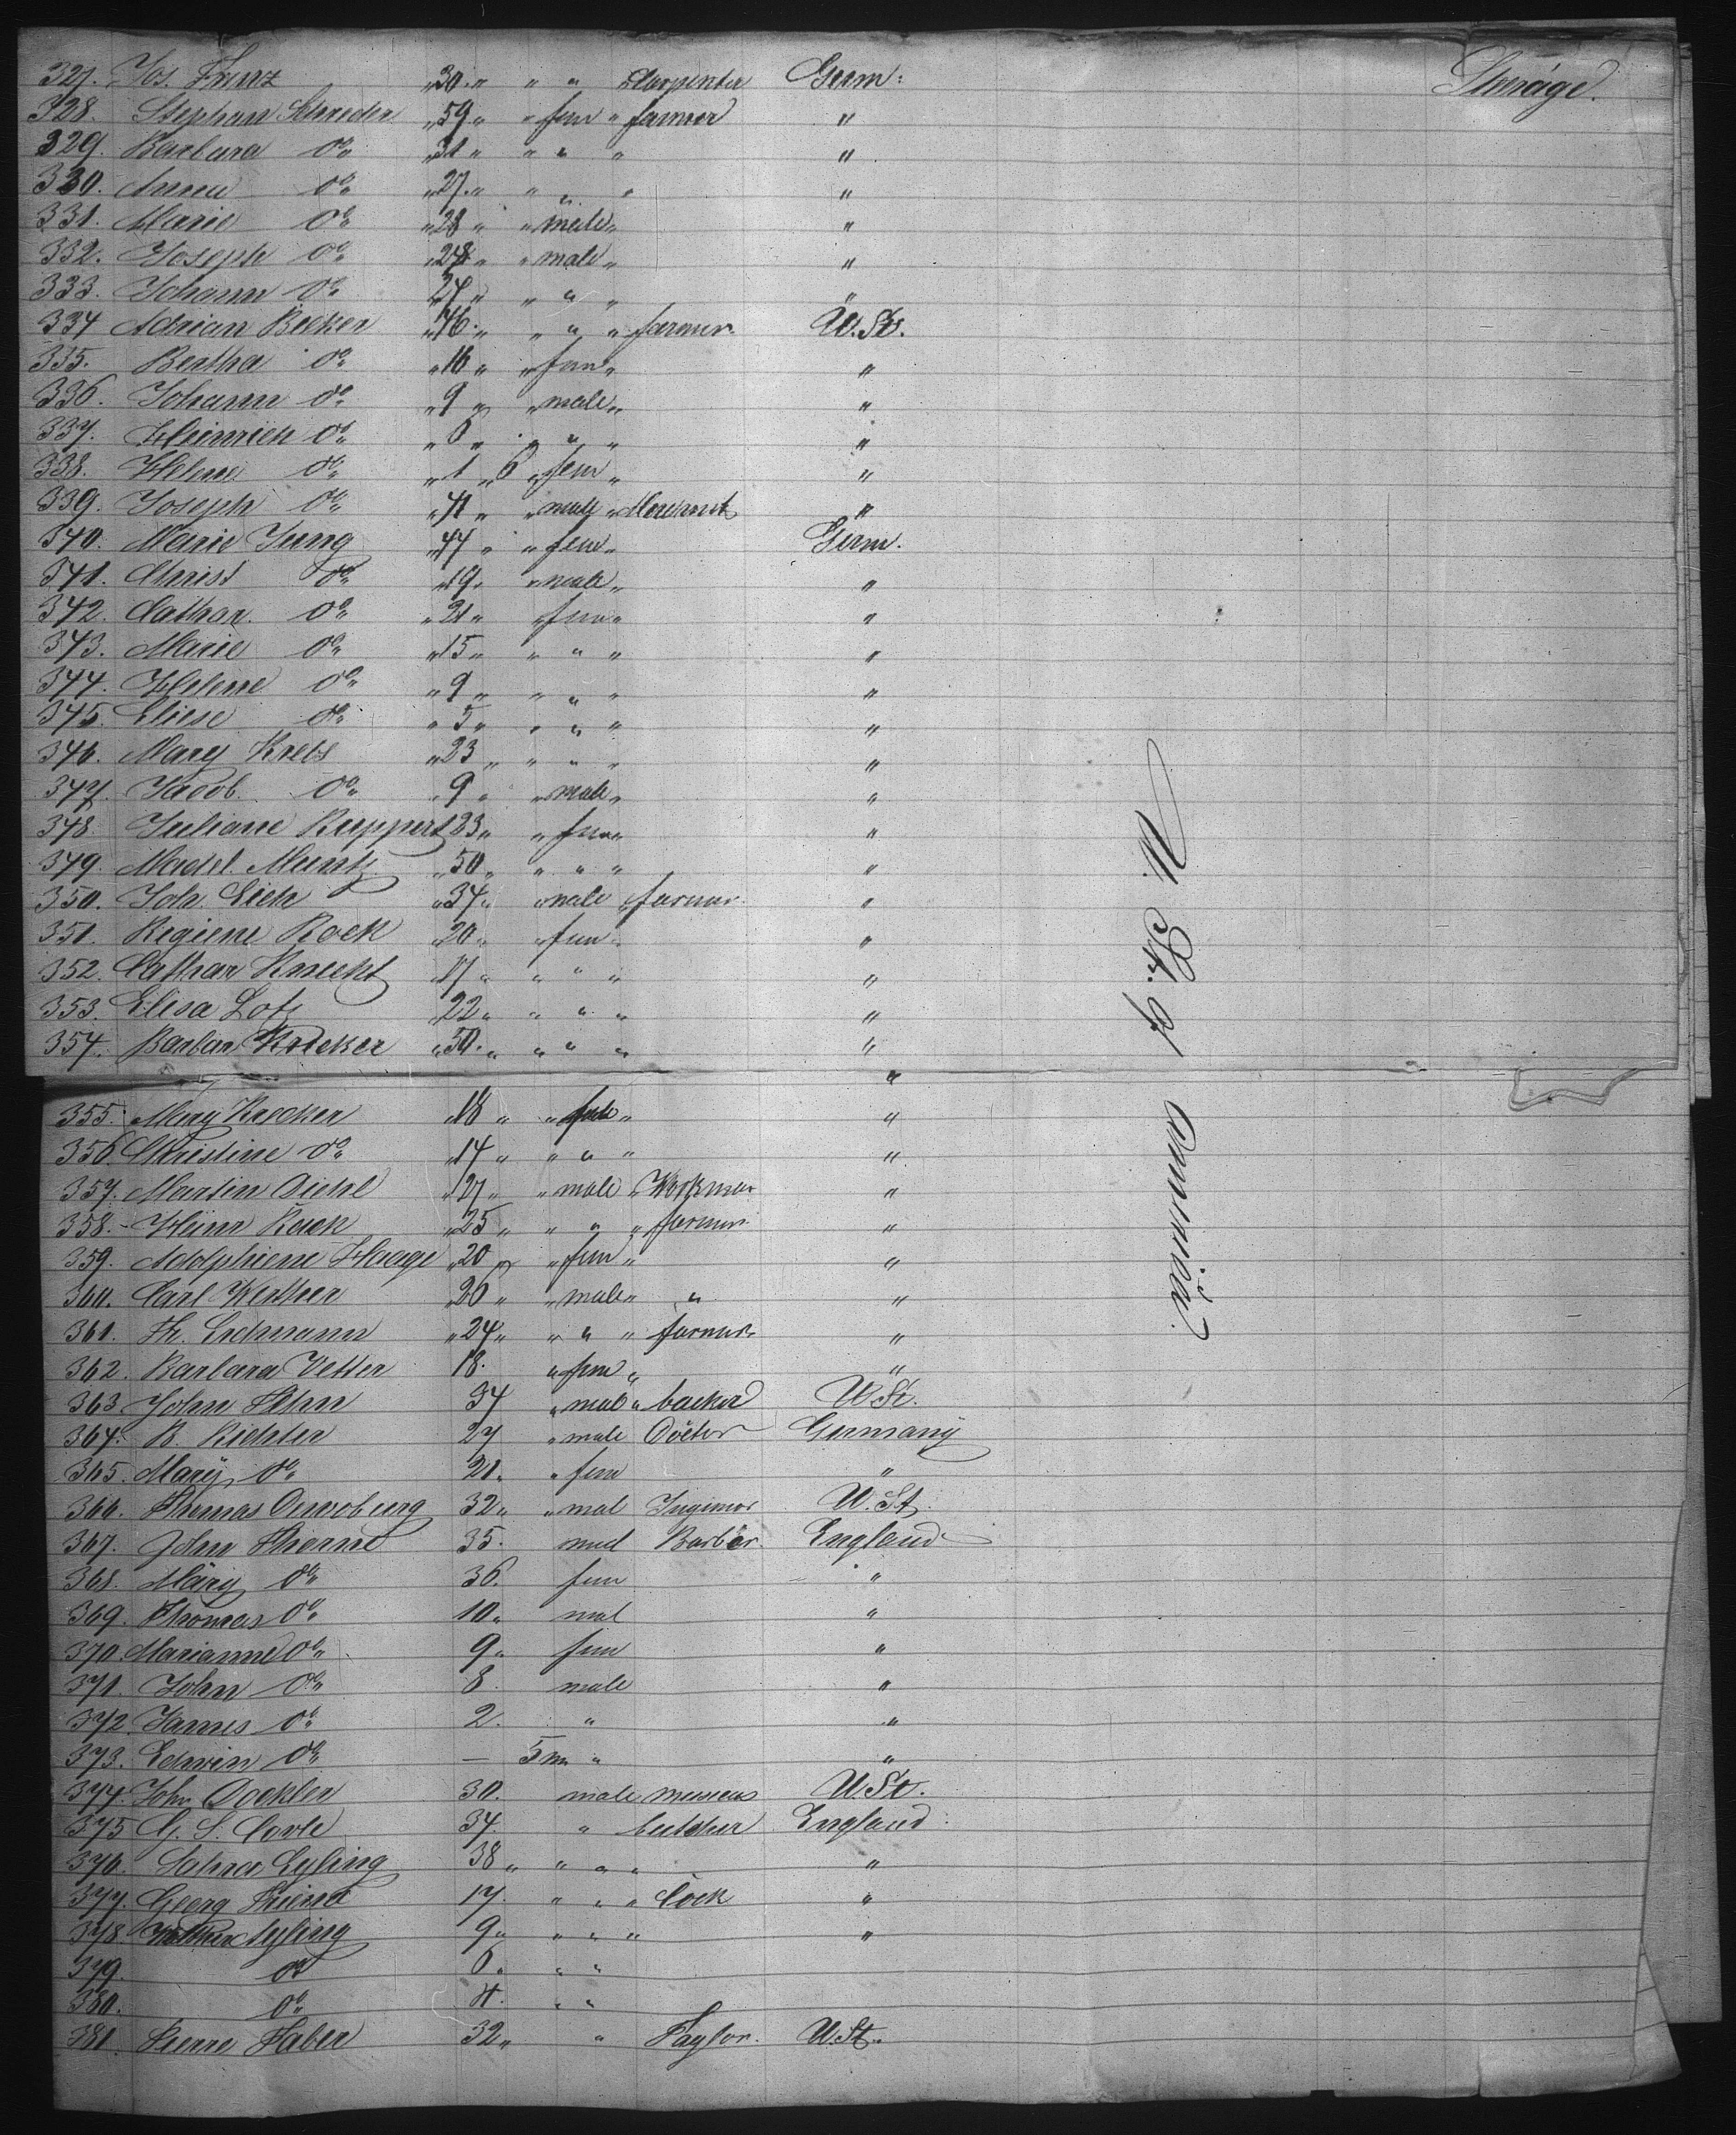 327. Jos. Kunz „30 „ „ „ „ Carpenter Germ: Steerage.
328. Stephan Schreder „59 „ „ fem „ farmer "
329. Barbara do „31 „ „ „ „ "
330. Anna do „27 „ „ „ „ "
331. Marie do „28 „ „ male „ "
332. Joseph do „ „ „ male „ "
333. Johann do 24 „ „ „ „ "
334 Adrian Becker „46 „ „ „ „ farmer U. St.
335. Bertha do „16 „ „ fem „ "
336. Johann do „9 „ „ male „ "
337. Heinrich do „6 „ „ „ „ "
338. Helene do „1 „ 6 „ fem „ "
339. Joseph do „41 „ „ male „ "
340. Marie Jung „44 „ „ fem „ Germ.
341. Christ do „19 „ male „ "
342. Cathar. do „21 „ „ fem „ "
343. Marie do „15 „ „ „ „ "
344. Helene do „9 „ „ „ „ "
345. Eliese do „5 „ „ „ „ "
346. Mary Krebs „23 „ „ „ „ "
347. Jacob do „9 „ „ male „ "
348 Juliane Ruppert 23 „ „ fem „ "
349. Madel. Muntz „50 „ „ „ „ "
350. Joh. Eich „34 „ „ male „ farmer "
351. Regiene Rock „20 „ „ fem „ "
352. Cathar Knecht „17 „ „ „ „ "
353. Elisa Lotz „22 „ „ „ „ "
354. Barbar Krecker „50 „ „ „ „ "
"
355. Mary Krecker „18 „ „ fem „ "
356. Christine do „14 „ „ „ „ "
357. Martin Diehl „27 „ „ male „ Workman "
358. Heinr Rock „25 „ „ „ „ farmer "
359. Adolphiene Haage „20 „ „ fem „ "
360. Carl Werther „26 „ „ male „ „ "
361. Fr. Erdmann „24 „ „ „ „ farmer "
362. Barbara Vetter 18. „ fem „ "
363. John Hehn 34 „ male „ backer U St.
364. B. Richter 27 „ male Docter Germany
365. Mary do 21. „ fem "
366. Thomas 32 „ „ mal Ingineor U. St.
367. John 35. mal Barber England
368. Mary do 36. fem "
369. Thomas do 10. mal "
370. Marianne do 9. fem "
371. John do 8. male "
372. James do 2. " "
373. Edwin do — 5 m „ "
374. John Dechler 30. male musicus U St.
375 G. S. Coole 34. " butcher England
376. Eyling 38 „ „ „ „ "
377. Georg 17. „ „ „ Cock "
378. Eyling 9 „ „ „ „ "
379. do 6. „ „
380. do 4. „ „
381. Pierre Faber 32 „ " Taylor. U. St.
U. St. of America.